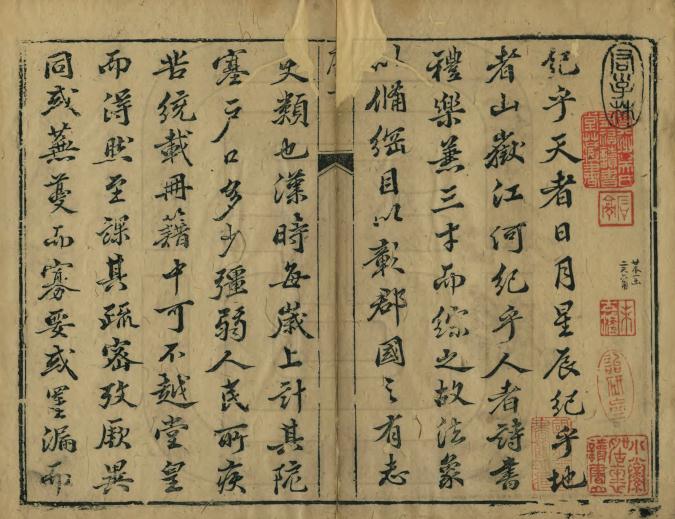 紀乎天者日月星辰紀乎地
者山嶽江河紀乎人者詩書
禮樂兼三才而綜之故法象
以備綱目以彰郡國之有志
史類也漢時每歲上計其阨
塞戶口多少彊弱人民所疾
苦統載冊籍中可不越堂皇
而得然至課其疏密攷厥異
同或蕪蔓而寡要或墨漏而